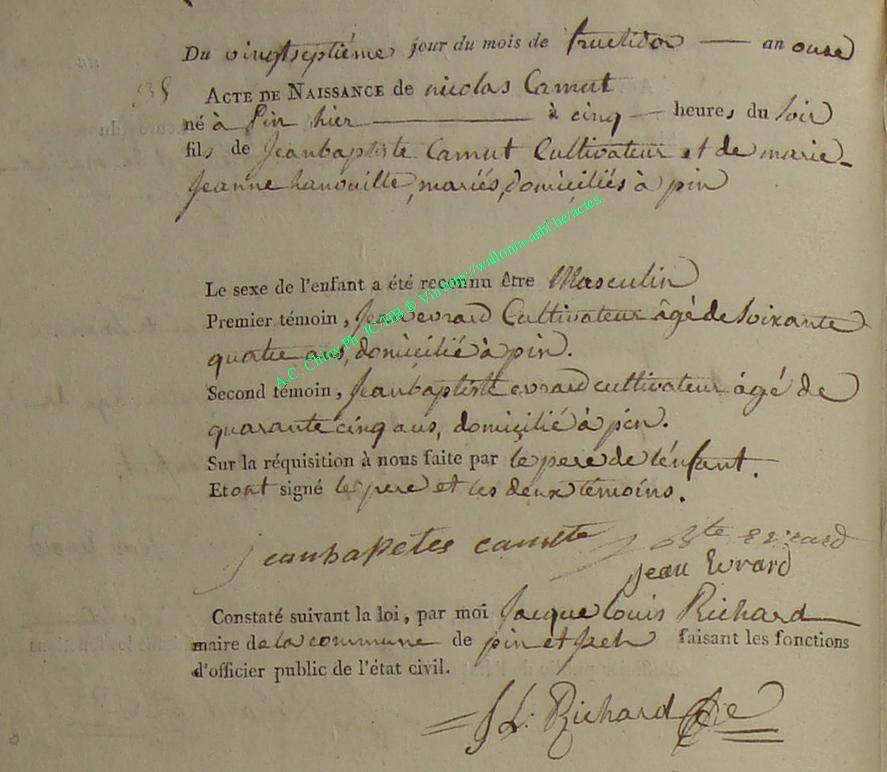 Du vingtseptiéme jour du mois de fructidor — an onze
38 ACTE DE NAISSANCE de nicolas Camut
né à Pin hier — à cinq — heures du soir
fils de Jeanbaptiste Camut Cultivateur et de marie-
Jeanne hanouille, mariés, domiciliés à pin
A.C. Chiny Ph. JC/LH ® Via http://wallonia-asbl.be/actes
Le sexe de l'enfant a été reconnu être Masculin
Premier témoin, Jean evrard Cultivateur âgé de soixante
quatre ans, domicilié à pin.
Second témoin, Jeanbaptiste evrard cultivateur âgé de
quarante cinq ans, domicilié à pin.
Sur la réquisition à nous faite par le pere de l'énfant.
Et ont signé le pere et les deux témoins.
jeanbapetes camute J Bte evrard
jean Evrard
Constaté suivant la loi, par moi Jacque Louis Richard
maire de la commune de pin et Izel faisant les fonctions
d'officier public de l'état civil.
J L: Richard